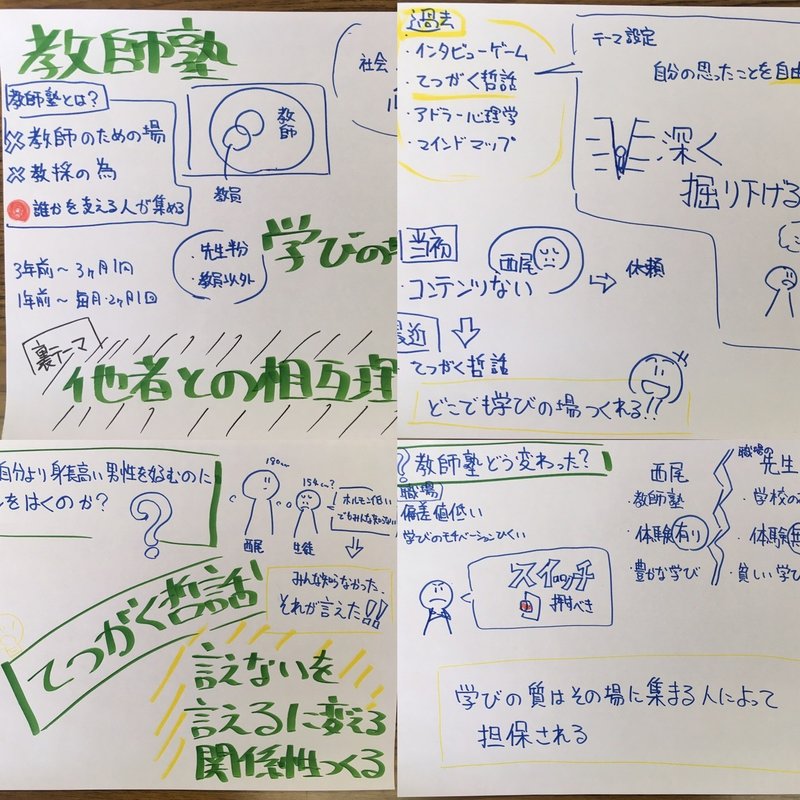 教師塾
教師塾とは?
×教師のための場
×教採の為
誰かを支える人が集める
教師
教員
社会
3年前〜3ヶ月1回
1年前〜毎月・2ヶ月1回
・先生半分
・教員以外
学びの
裏テーマ
他者との相互理
過去
・インタビューゲーム
・てつがく哲話
・アドラー心理学
・マインドマップ
テーマ設定
自分の思ったことを自由
深く
掘り下げる
当初
西尾
・コンテンツない
依頼
最近
てつがく哲話
どこでも学びの場つくれる!!
自分より身長高い男性を好むのに
をはくのか?
?
180cm
154cm?
西尾
生徒
ホルモン低い
でもみんな知らない
みんな知らなかった
それが言えた!!
てつがく哲話
言えないを
言えるに変える
関係性つくる
?教師塾どう変わった?
職場
偏差値低い
学びのモチベーションひくい
スイッチ
押すべき
西尾
・教師塾
・体験有り
・豊かな学び
職場の
先生
・学校の
・体験無
・貧しい学び
学びの質はその場に集まる人によって
担保される